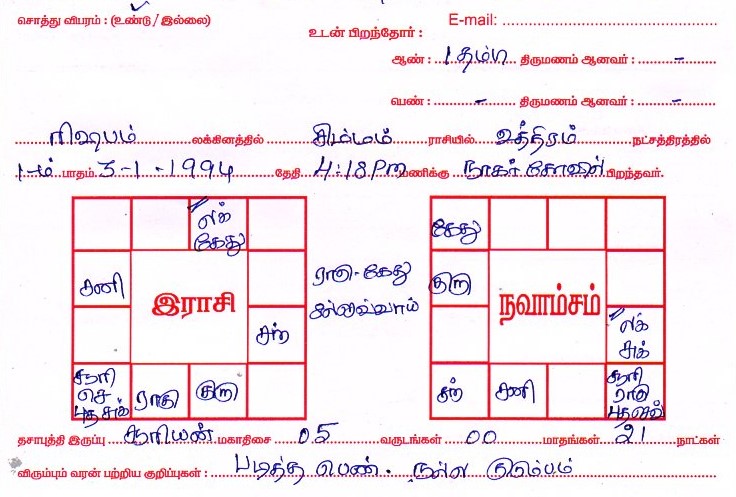 சொத்து விபரம் : (உண்டு / இல்லை)
E-mail:
உடன் பிறந்தோர் :
ஆண் : 1 தம்பி திருமணம் ஆனவர் : -
பெண் : - திருமணம் ஆனவர் : -
ரிஷபம் லக்கினத்தில் சிம்மம் ராசியில் உத்திரம் நட்சத்திரத்தில்
1-ம் பாதம் 3-1-1994 தேதி 4:18 Pm மணிக்கு நாகர்கோவில் பிறந்தவர்.
லக் கேது
சனி
இராசி
சந்
சூரி செ புத சுக்
ராகு
குரு
ராகு-கேது
செவ்வாய்
கேது
குரு
நவாம்சம்
லக் சுக்
சந்
சனி
சூரி ராகு புத செவ்
தசாபுத்தி இருப்பு சூரியன் மகாதிசை 05 வருடங்கள் 00 மாதங்கள் 21 நாட்கள்
விரும்பும் வரன் பற்றிய குறிப்புகள் : படித்த பெண். நல்ல குடும்பம்